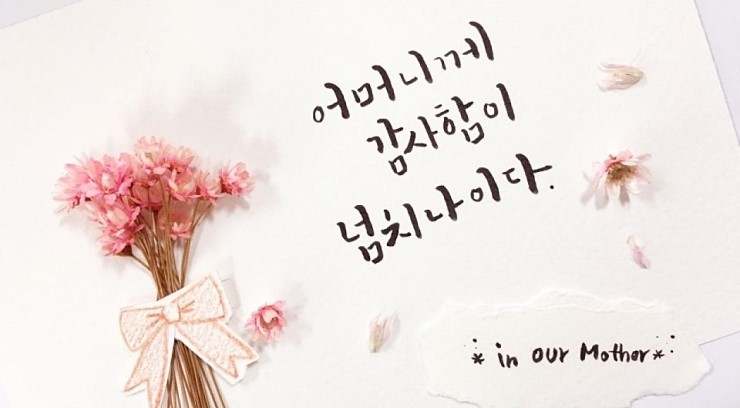 어머니께
감사함이
넘치나이다.
* in our Mother *